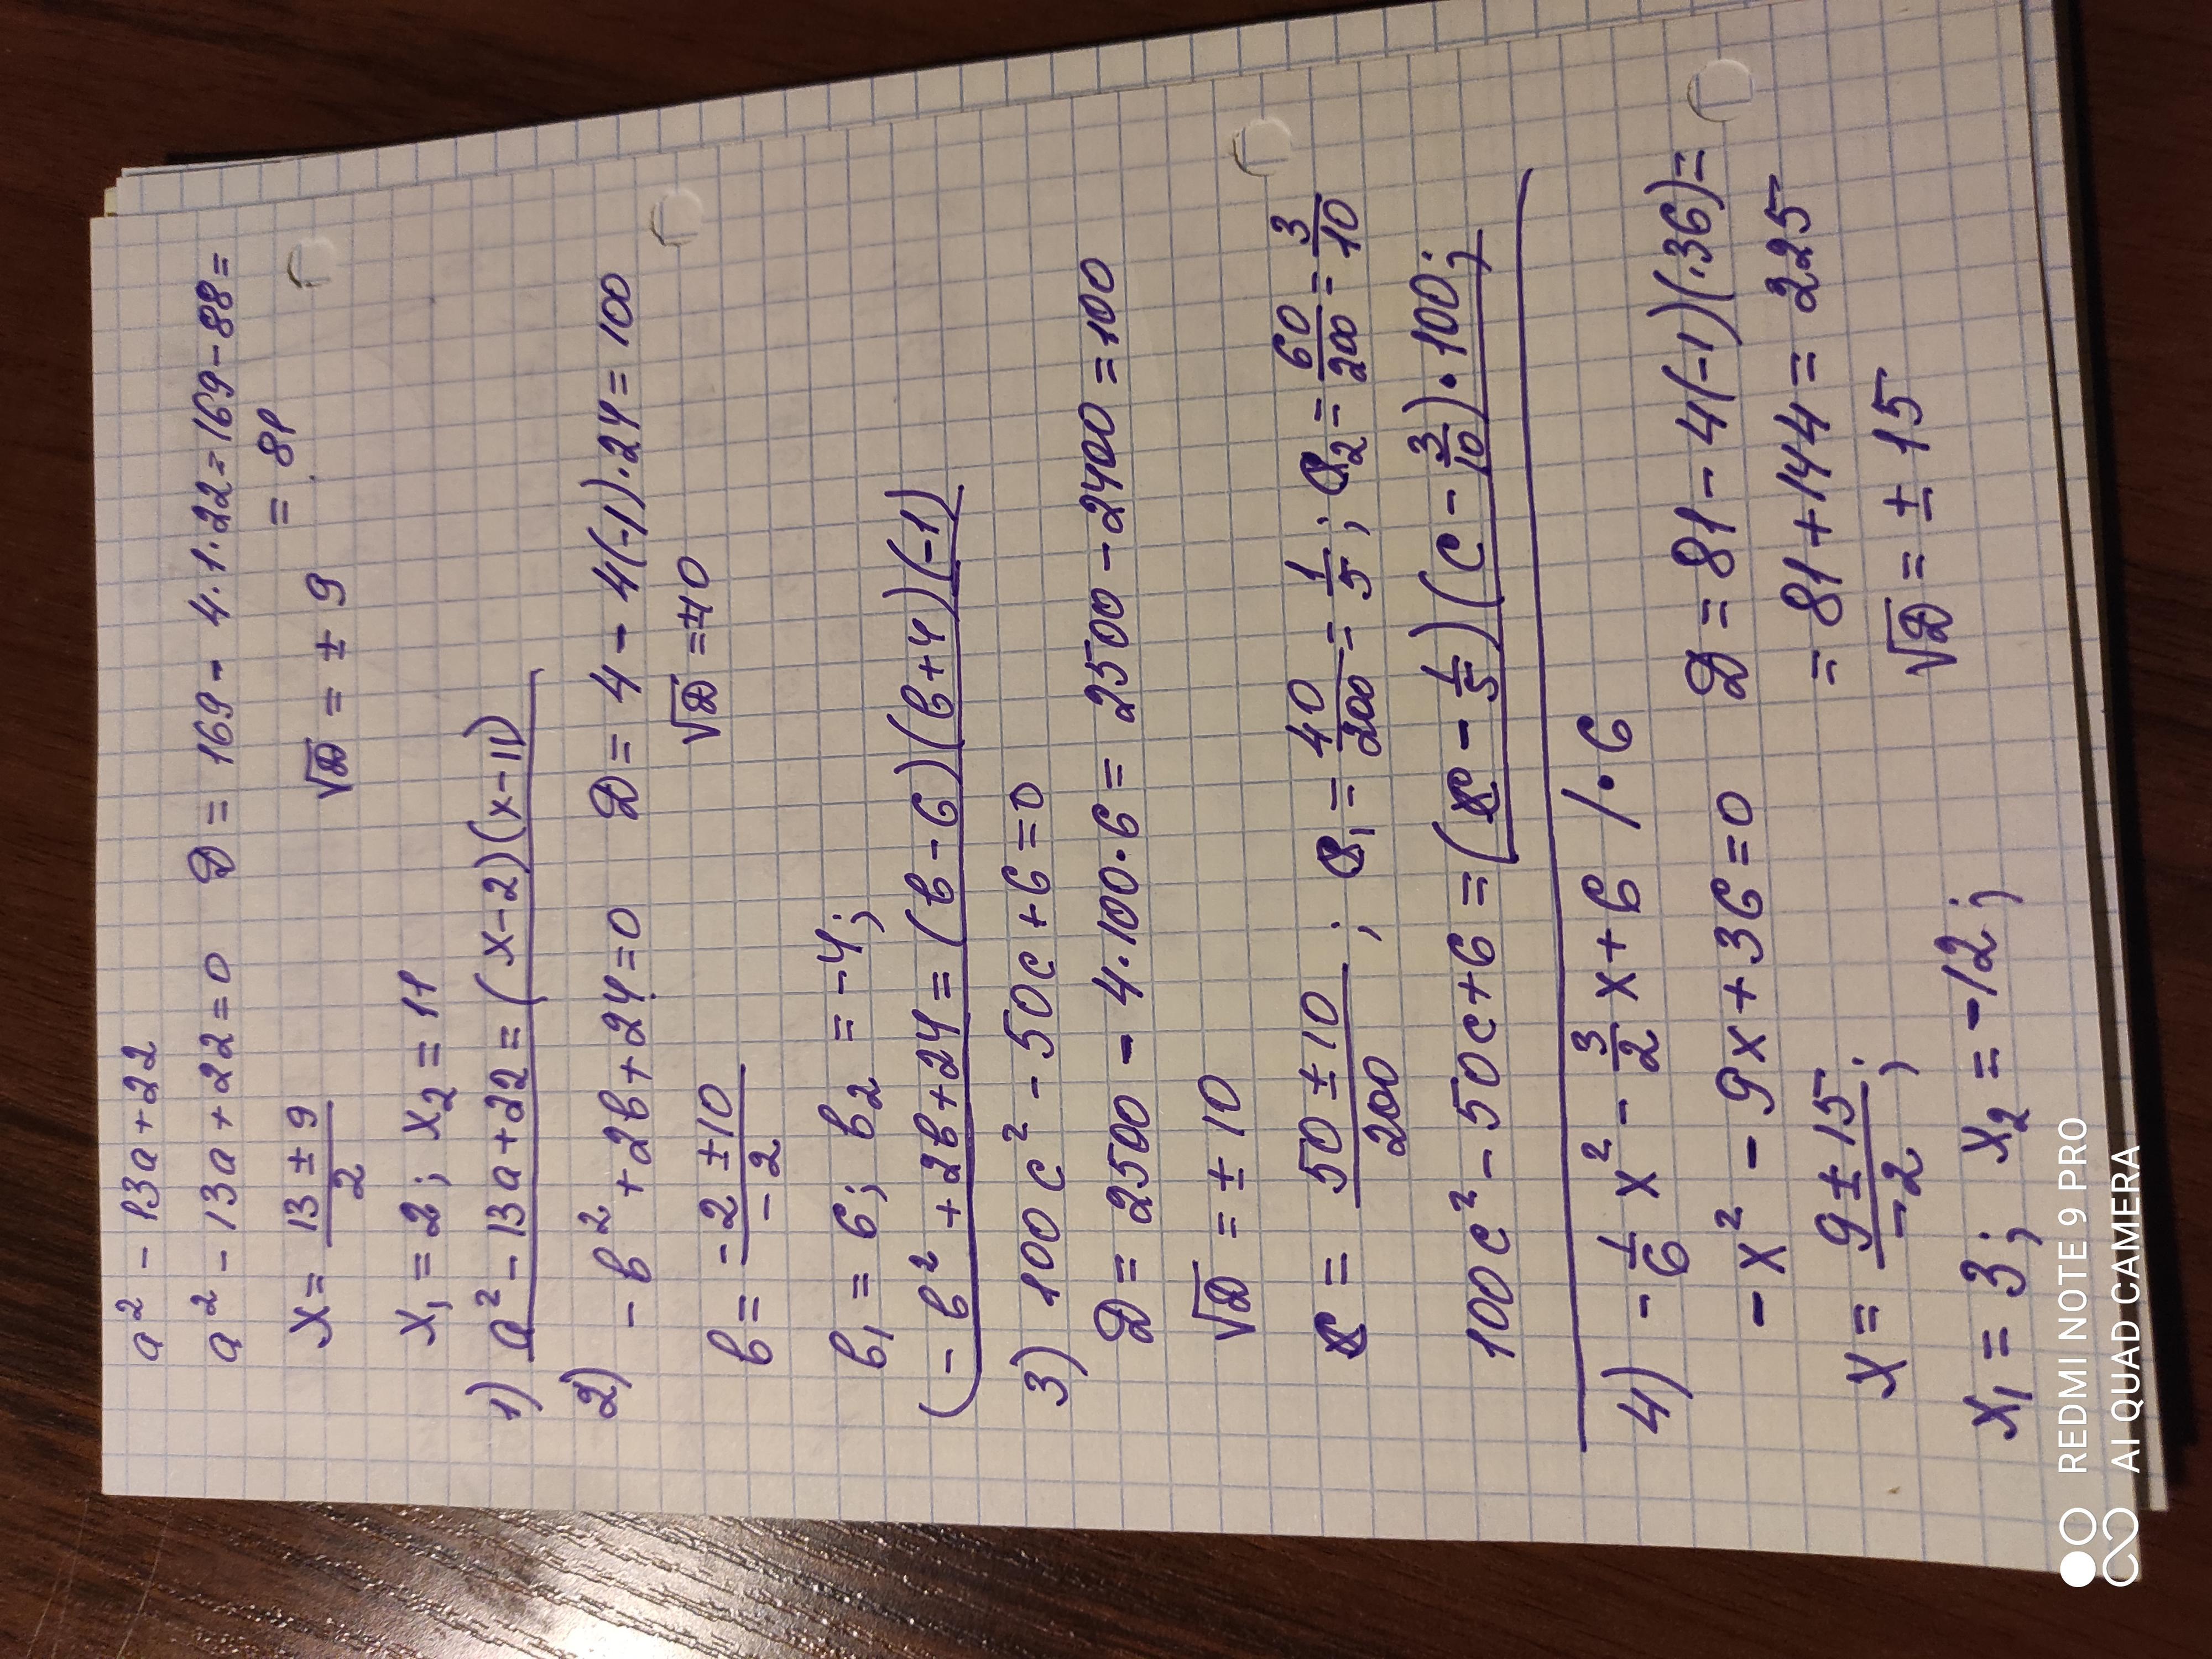 a² - 13a + 22
a² - 13a + 22 = 0 D = 169 - 4·1·22 = 169 - 88 =
= 81
x = (13 ± 9)/2 √D = ± 9
x₁ = 2; x₂ = 11
1) a² - 13a + 22 = (x - 2)(x - 11)
2) -b² + 2b + 24 = 0 D = 4 - 4(-1)·24 = 100
b = (-2 ± 10)/-2 √D = ±10
b₁ = 6; b₂ = -4;
(-b² + 2b + 24 = (b - 6)(b + 4)(-1)
3) 100c² - 50c + 6 = 0
D = 2500 - 4·100·6 = 2500 - 2400 = 100
√D = ± 10
c = (50 ± 10)/200; c₁ = 40/200 = 1/5; c₂ = 60/200 = 3/10
100c² - 50c + 6 = (c - 1/5)(c - 3/10)·100;
4) -1/6 x² - 3/2 x + 6 /·6
-x² - 9x + 36 = 0 D = 81 - 4(-1)(·36) =
= 81 + 144 = 225
x = (9 ± 15)/-2; √D = ± 15
x₁ = 3; x₂ = -12;
REDMI NOTE 9 PRO
AI QUAD CAMERA